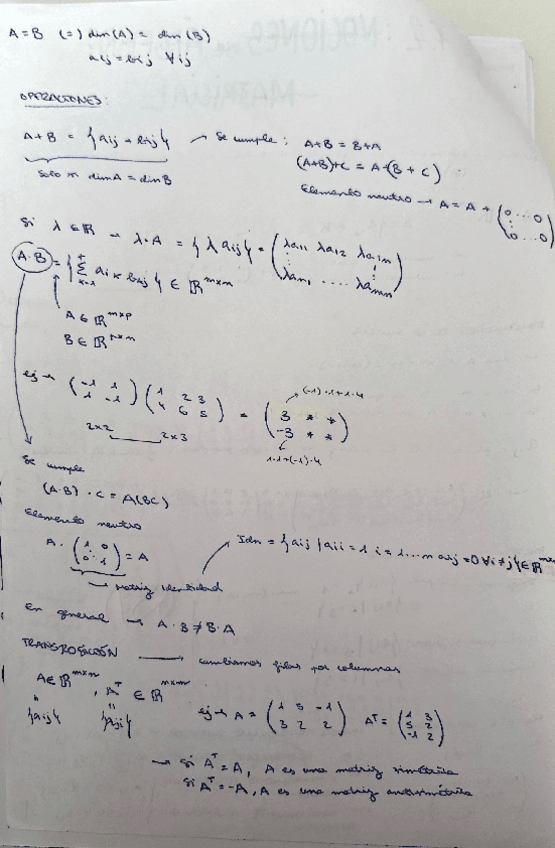 A=B (=) dim(A) = dim(B)
aij = bij ∀ij
OPERACIONES:
A+B = {aij + bij} → Se cumple: A+B = B+A
(A+B)+C = A+(B+C)
Solo si dimA = dimB
Elemento neutro → A = A + (0 ... 0 ⋮ 0 ... 0)
Si λ ∈ ℝ → λ·A = {λaij} = (λa11 λa12 λa1n ⋮ λam1 .... λamn)
A·B = {Σ aik bkj} ∈ ℝ^mxn
A ∈ ℝ^mxp
B ∈ ℝ^pxn
ej → (-1 1 / 1 -1) (1 2 3 / 4 6 5) = (3 * * / -3 * *)
(-1)·1+1·4
2x2 2x3
1·1+(-1)·4
Se cumple
(A·B)·C = A(BC)
Elemento neutro
A·(1 0 ⋱ 0 1) = A
Idn = {aij / aii = 1 i = 1...n aij = 0 ∀i≠j} ∈ ℝ
→ Matriz identidad
En general → A·B ≠ B·A
TRANSPOSICIÓN → cambiamos filas por columnas
A ∈ ℝ^mxn, A^T ∈ ℝ^nxm
{aij} {aji}
ej → A = (1 5 -1 / 3 2 2) A^T = (1 3 / 5 2 / -1 2)
→ Si A^T = A, A es una matriz simétrica
Si A^T = -A, A es una matriz antisimétrica